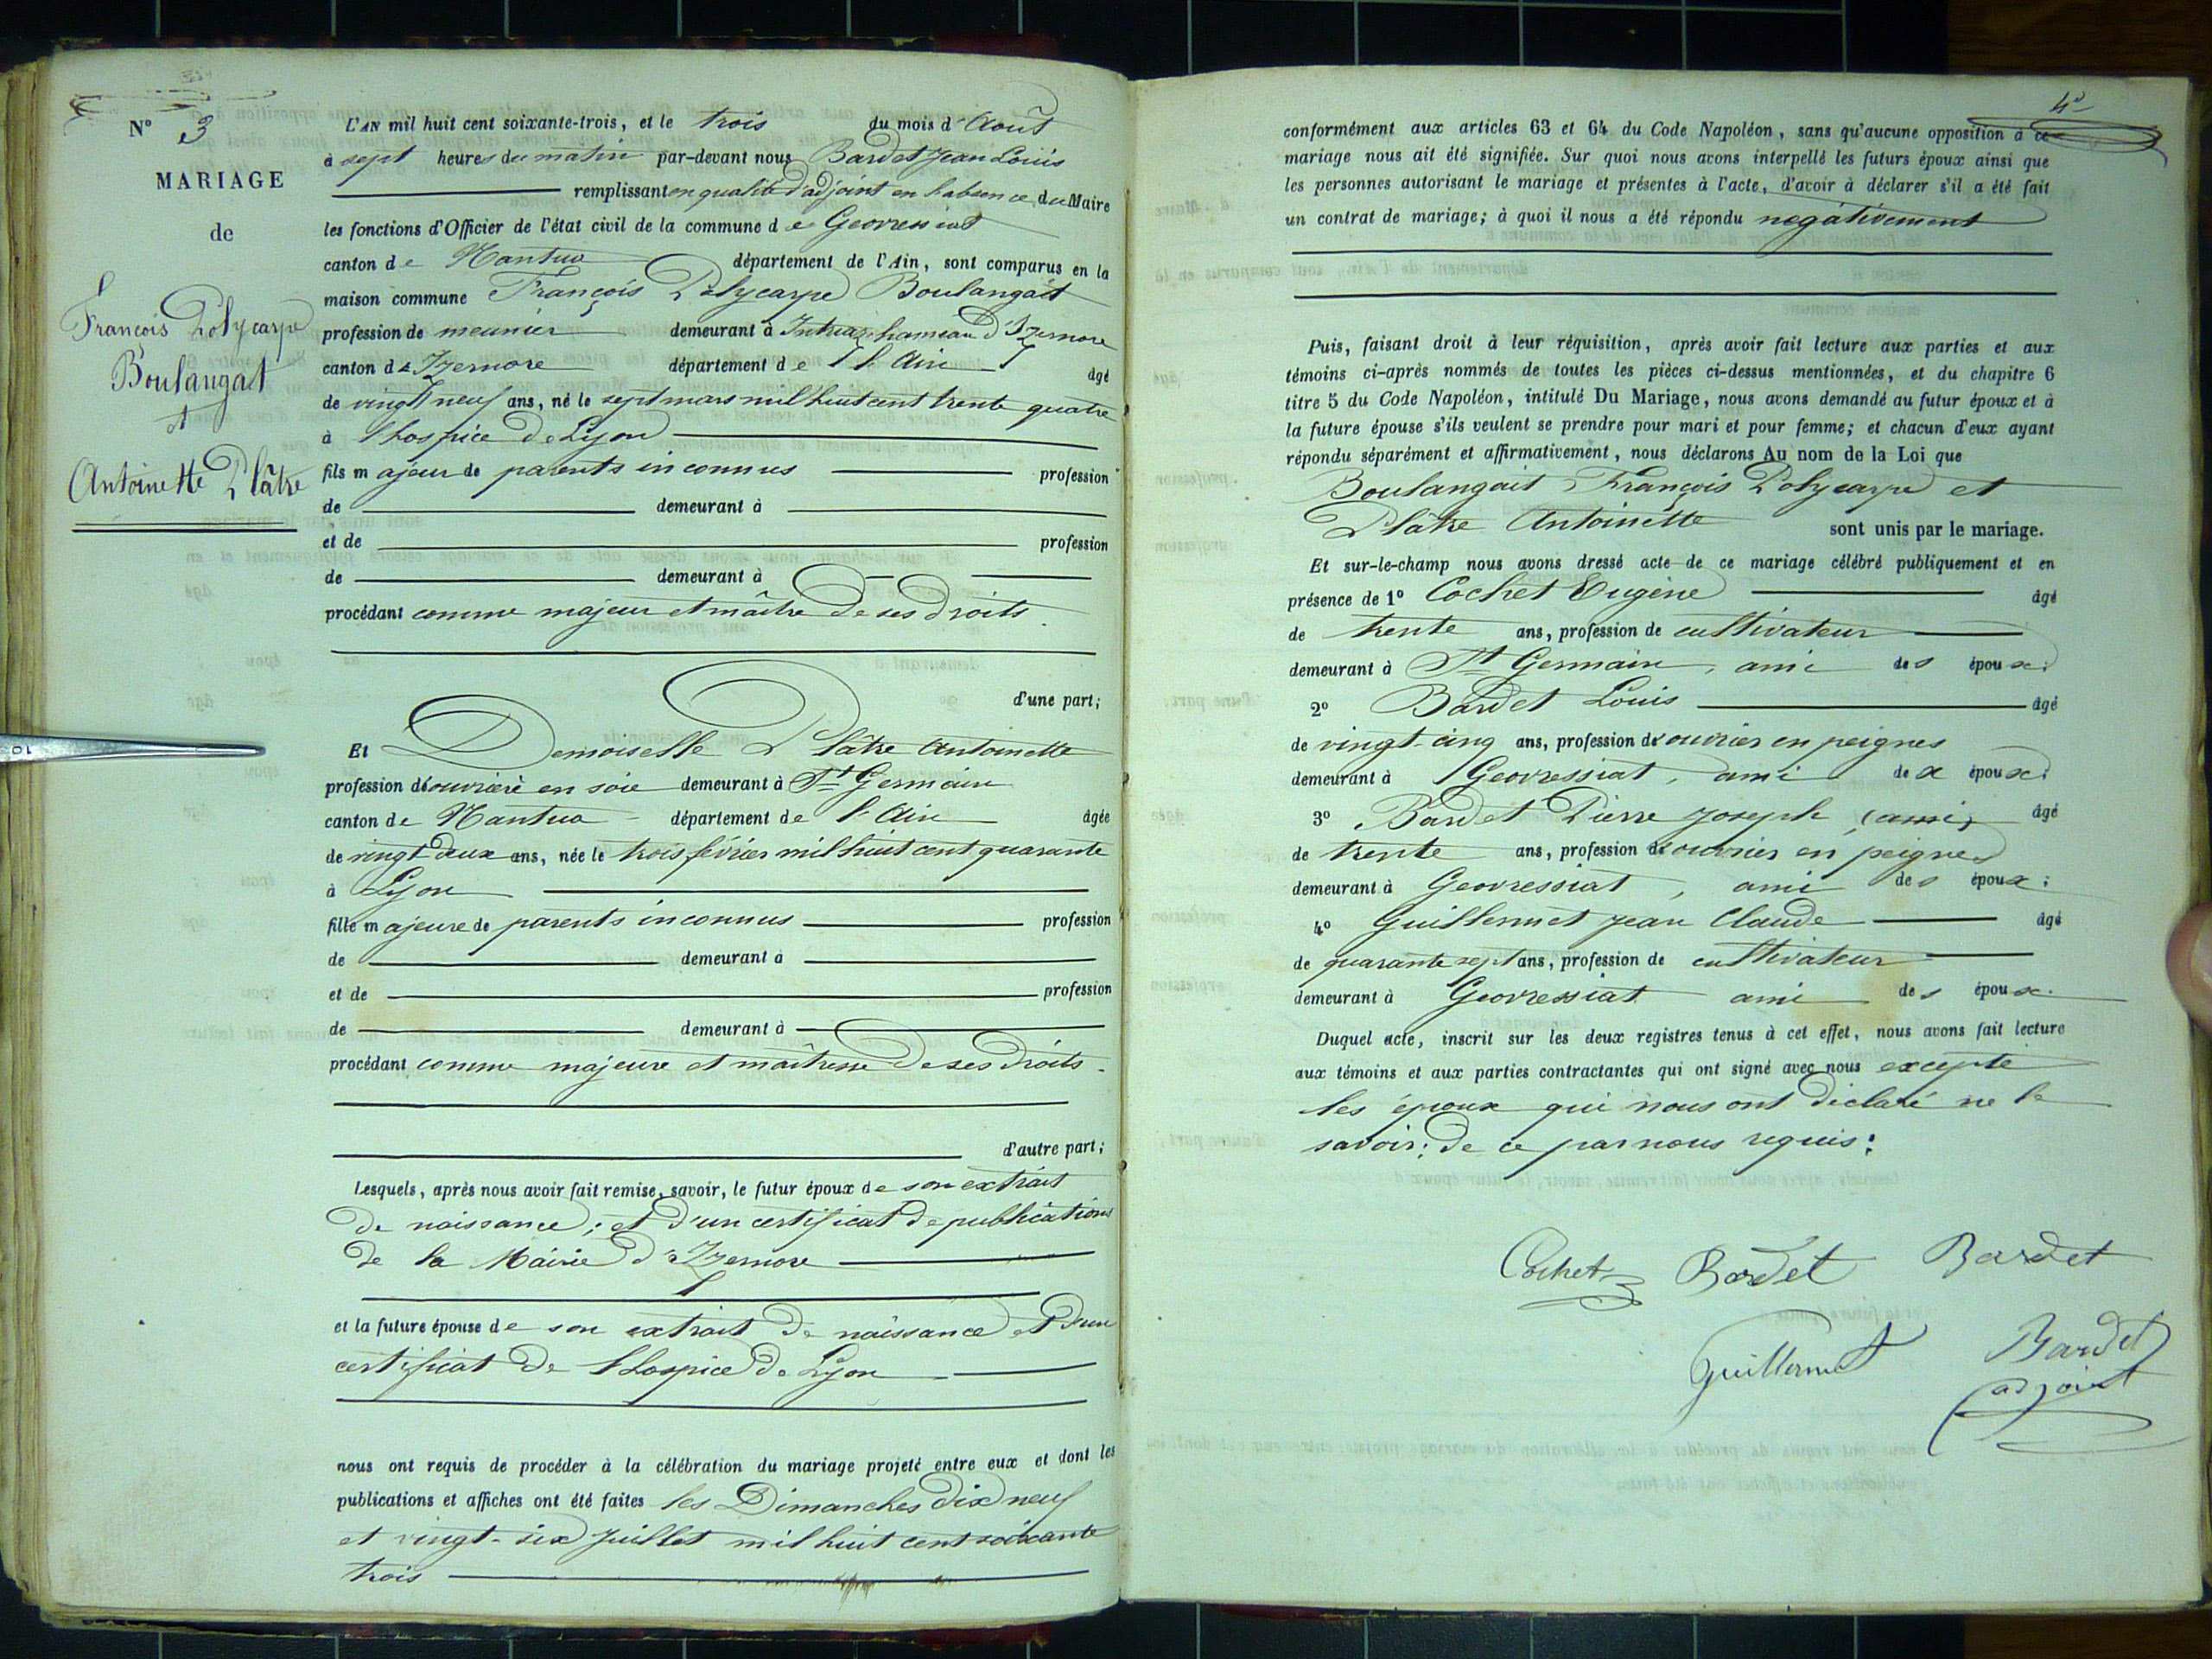 N° 3
MARIAGE
de
François Polycarpe
Boulangat
et
Antoinette Plâtre
L'AN mil huit cent soixante-trois, et le trois du mois d'Août
à sept heures du matin par-devant nous Bardet Jean Louis
remplissant en qualité d'adjoint en l'absence du Maire
les fonctions d'Officier de l'état civil de la commune de Geovressiat
canton de Nantua département de l'Ain, sont comparus en la
maison commune François Polycarpe Boulangait
profession de meunier demeurant à Intriaz hameau d'Izernore
canton de Izernore département de l'Ain âgé
de vingt neuf ans, né le sept mars mil huit cent trente quatre
à l'hospice de Lyon
fils majeur de parents inconnus profession
de demeurant à
et de profession
de demeurant à
procédant comme majeur et maître de ses droits.
d'une part;
Et Demoiselle Plâtre Antoinette
profession d'ouvrière en soie demeurant à St Germain
canton de Nantua département de l'Ain âgée
de vingt deux ans, née le trois février mil huit cent quarante
à Lyon
fille majeure de parents inconnus profession
de demeurant à
et de profession
de demeurant à
procédant comme majeure et maîtresse de ses droits.
d'autre part;
Lesquels, après nous avoir fait remise, savoir, le futur époux de son extrait
de naissance; et d'un certificat de publications
de la Mairie d'Izernore
et la future épouse de son extrait de naissance et d'un
certificat de l'hospice de Lyon
nous ont requis de procéder à la célébration du mariage projeté entre eux et dont les
publications et affiches ont été faites les Dimanches dix neuf
et vingt-six Juillet mil huit cent soixante
trois
4
conformément aux articles 63 et 64 du Code Napoléon, sans qu'aucune opposition à ce
mariage nous ait été signifiée. Sur quoi nous avons interpellé les futurs époux ainsi que
les personnes autorisant le mariage et présentes à l'acte, d'avoir à déclarer s'il a été fait
un contrat de mariage; à quoi il nous a été répondu negativement
Puis, faisant droit à leur réquisition, après avoir fait lecture aux parties et aux
témoins ci-après nommés de toutes les pièces ci-dessus mentionnées, et du chapitre 6
titre 5 du Code Napoléon, intitulé Du Mariage, nous avons demandé au futur époux et à
la future épouse s'ils veulent se prendre pour mari et pour femme; et chacun d'eux ayant
répondu séparément et affirmativement, nous déclarons Au nom de la Loi que
Boulangait François Polycarpe et
Plâtre Antoinette sont unis par le mariage.
Et sur-le-champ nous avons dressé acte de ce mariage célébré publiquement et en
présence de 1° Cochet Eugène âgé
de trente ans, profession de cultivateur
demeurant à St Germain, ami des époux;
2° Bardet Louis âgé
de vingt-cinq ans, profession d'ouvrier en peignes
demeurant à Geovressiat, ami de époux;
3° Bardet Pierre Joseph (ami) âgé
de trente ans, profession d'ouvrier en peignes
demeurant à Geovressiat, ami des époux;
4° Guillermet Jean Claude âgé
de quarante sept ans, profession de cultivateur
demeurant à Geovressiat ami des époux.
Duquel acte, inscrit sur les deux registres tenus à cet effet, nous avons fait lecture
aux témoins et aux parties contractantes qui ont signé avec nous excepté
les époux qui nous ont déclaré ne le
savoir; de ce par nous requis:
Cochet Bardet Bardet
Guillermet Bardet
adjoint